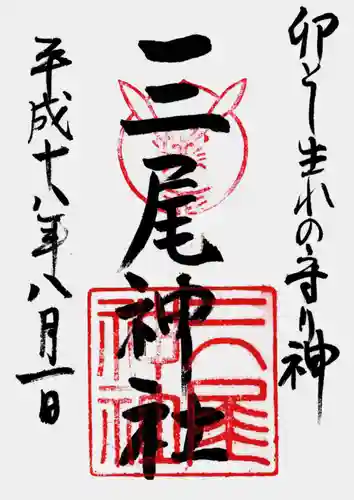 卯とし生れの守り神
三尾神社
平成十八年八月一日
三尾神社